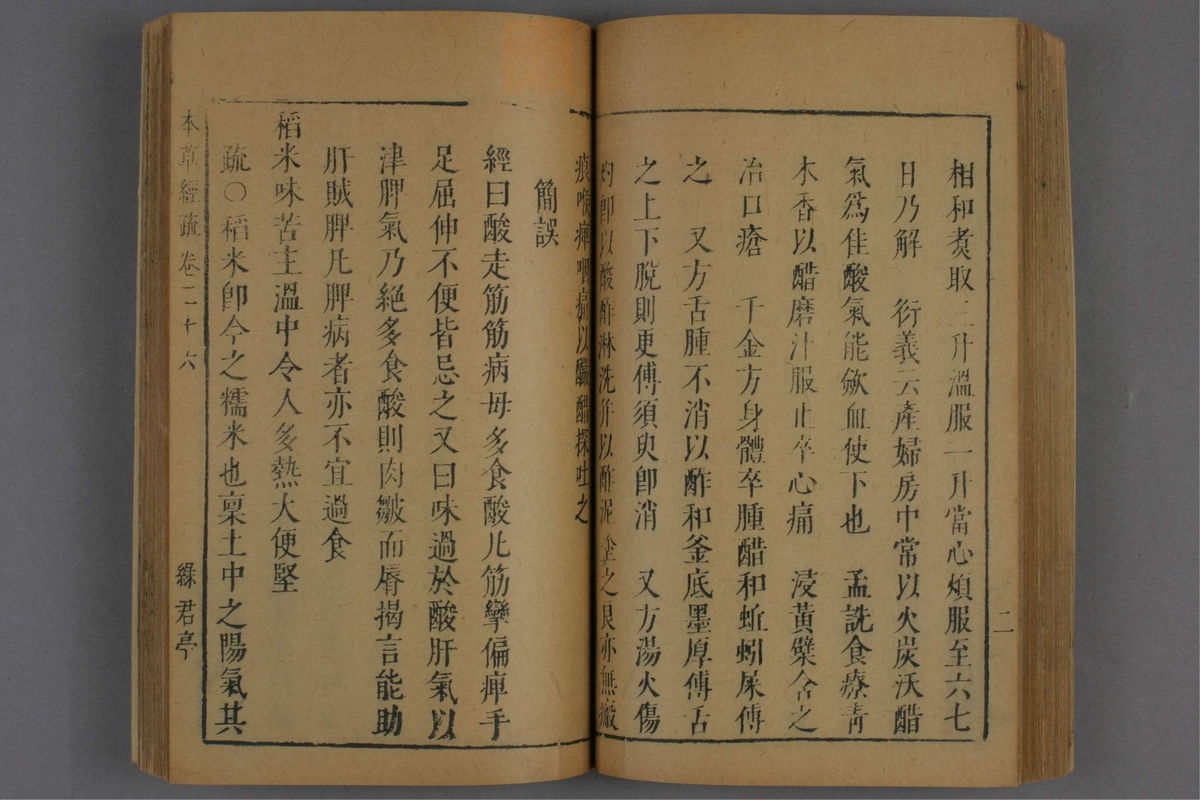 二
相和煑取三升溫服一升當心煩服至六七
日乃解　衍義云產婦房中常以火炭沃醋
氣爲佳酸氣能斂血使下也　孟詵食療靑
木香以醋磨汁服止卒心痛　浸黃檗含之
治口瘡　千金方身體卒腫醋和蚯蚓屎傅
之　又方舌腫不消以酢和釜底墨厚傅舌
之上下脫則更傅須臾卽消　又方湯火傷
灼卽以酸酢淋洗幷以酢泥塗之良亦無瘢
痕喉痺咽痛以釅醋探吐之
簡誤
經曰酸走筋筋病毋多食酸凡筋攣偏痺手
足屈伸不便皆忌之又曰味過於酸肝氣以
津脾氣乃絕多食酸則肉皺而脣揭言能助
肝賊脾凡脾病者亦不宜過食
稻米味苦主溫中令人多熱大便堅
疏○稻米卽今之糯米也稟土中之陽氣其
本草經疏　卷二十六　綠君亭